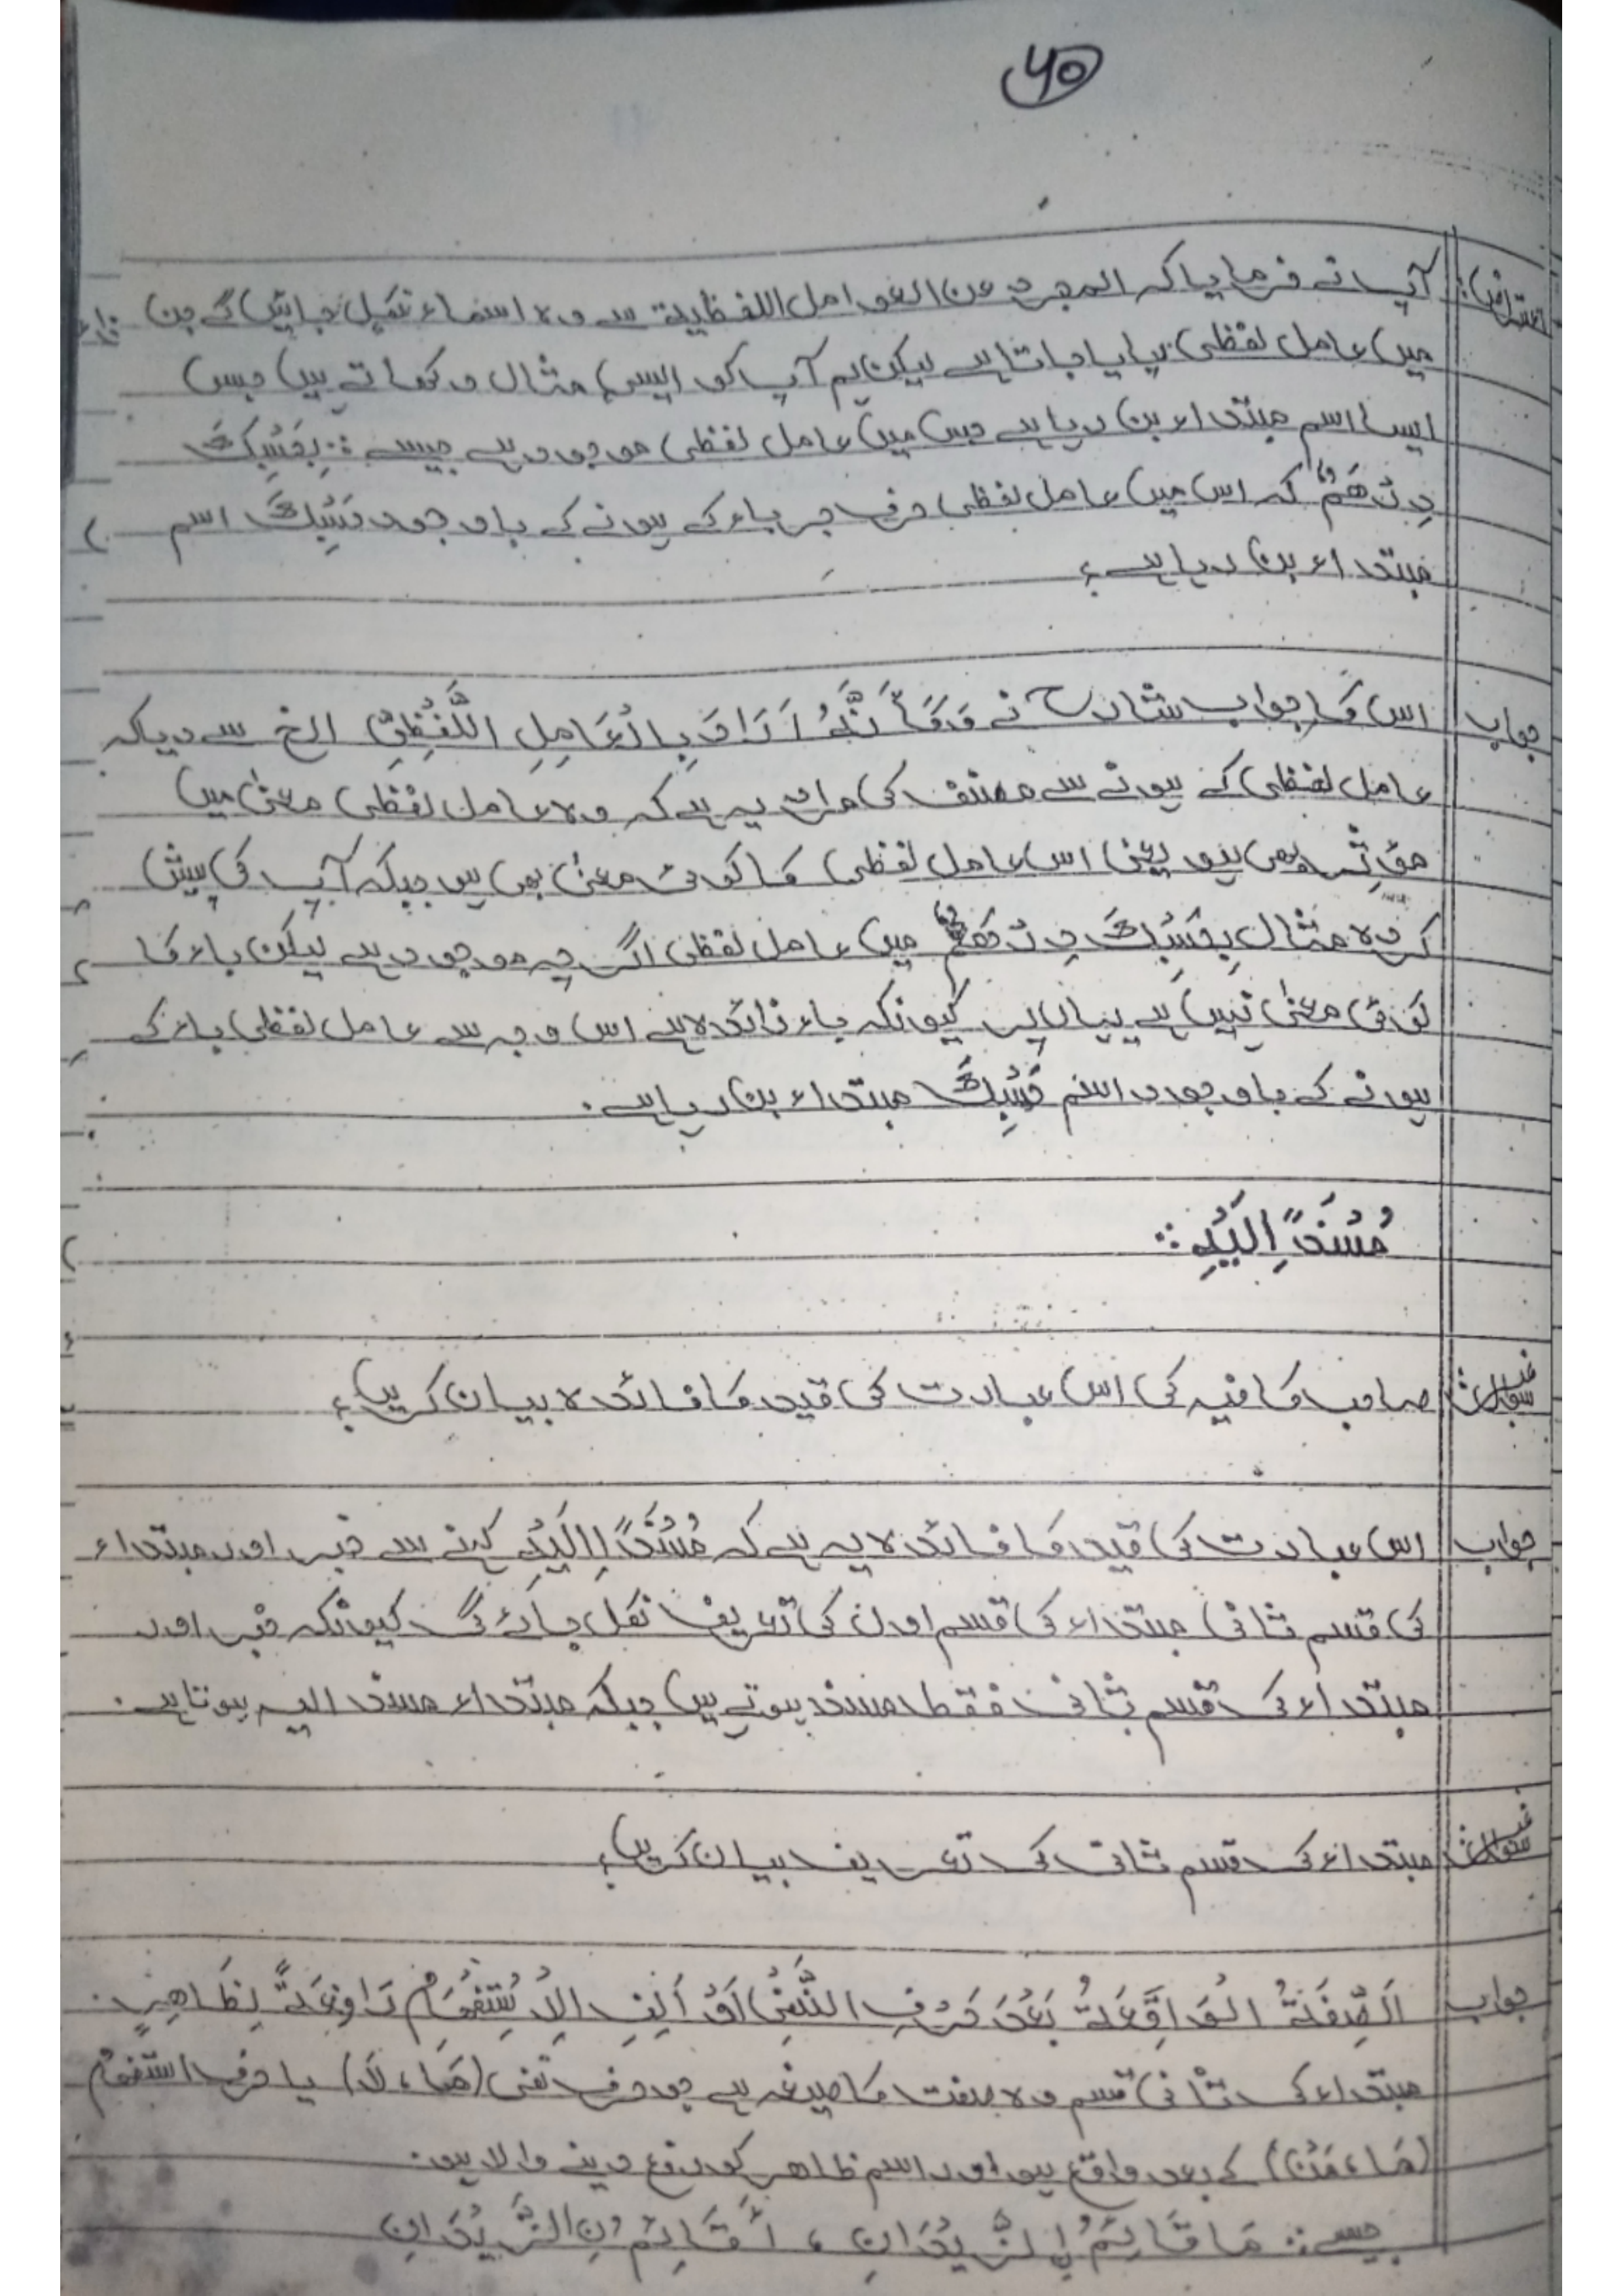 40
اعتراض: آپ نے فرمایا کہ المجرد عن العوامل اللفظیۃ سے وہ اسماء نکل جائیں گے جن
میں عامل لفظی پایا جاتا ہے لیکن ہم آپ کو ایسی مثال دکھاتے ہیں جس
ایسا اسم مبتداء بن رہا ہے جس میں عامل لفظی موجود ہے جیسے :: بِحَسْبِكَ
دِرْهَمٌ کہ اس میں عامل لفظی حرف جر باء کے ہونے کے باوجود حَسْبِكَ اسم
مبتداء بن رہا ہے؟
جواب اس کا جواب شارح نے وَكَأَنَّهُ اَرَادَ بِالْعَامِلِ اللَّفْظِيِّ الخ سے دیا کہ
عامل لفظی کے ہونے سے مصنف کی مراد یہ ہے کہ وہ عامل لفظی معنیٰ میں
مؤثر بھی ہو یعنی اس عامل لفظی کا کوئی معنیٰ بھی ہو جبکہ آپ کی پیش
کردہ مثال بِحَسْبِكَ دِرْهَمٌ میں عامل لفظی اگرچہ موجود ہے لیکن باء کا
کوئی معنیٰ نہیں ہے یہاں پر کیونکہ باء زائدہ ہے اس وجہ سے عامل لفظی باء کے
ہونے کے باوجود اسم حَسْبِكَ مبتداء بن رہا ہے۔
مُسْنَدًا اِلَيْهِ ::
سوال صاحب کافیہ کی اس عبارت کی قید کا فائدہ بیان کریں؟
جواب اس عبارت کی قید کا فائدہ یہ ہے کہ مُسْنَدًا اِلَيْهِ کہنے سے خبر اور مبتداء
کی قسم ثانی مبتداء کی قسم اول کی تعریف نکل جائے گی کیونکہ خبر اور
مبتداء کی قسم ثانی فقط مسند ہوتے ہیں جبکہ مبتداء مسند الیہ ہوتا ہے۔
سوال مبتداء کی قسم ثانی کی تعریف بیان کریں؟
جواب اَلصِّفَةُ الْوَاقِعَةُ بَعْدَ حَرْفِ النَّفْيِ اَوْ اَلِفِ الْاِسْتِفْهَامِ رَافِعَةً لِظَاهِرٍ۔
مبتداء کی ثانی قسم وہ صفت کا صیغہ ہے جو حرف نفی (مَا، لَا) یا حرف استفہام
(مَا، مَنْ) کے بعد واقع ہو اور اسم ظاهر کو رفع دینے والا ہو۔
جیسے :: مَا قَائِمُ نِ الزَّيْدَانِ ، اَقَائِمُ نِ الزَّيْدَانِ